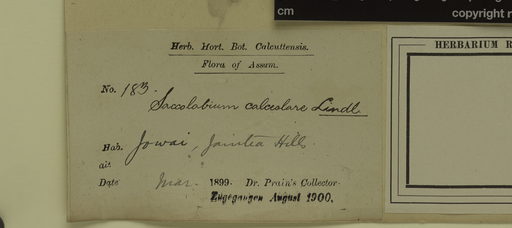 cm
copyright r
HERBARIUM R
Herb. Hort. Bot. Calcuttensis.
Flora of Assam.
No. 183.
Saccolabium calceolare Lindl.
Hab. Jowai, Jaintea Hills.
alt
Date Mar. 1899. Dr. Prain's Collector.
Zugegangen August 1900.